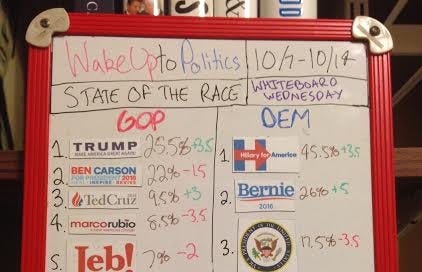 WakeUp to Politics 10/7-10/14
STATE OF THE RACE WHITEBOARD WEDNESDAY
GOP DEM
1. TRUMP 25.5% +3.5
MAKE AMERICA GREAT AGAIN!
2. BEN CARSON 22% -1.5
FOR PRESIDENT 2016
HEAL INSPIRE REVIVE
3. TedCruz 9.5% +3
4. marcorubio 8.5% -3.5
5. Jeb! 7% -2
1. Hillary for America 45.5% +3.5
2. Bernie 26% +5
2016
3. 17.5% -3.5